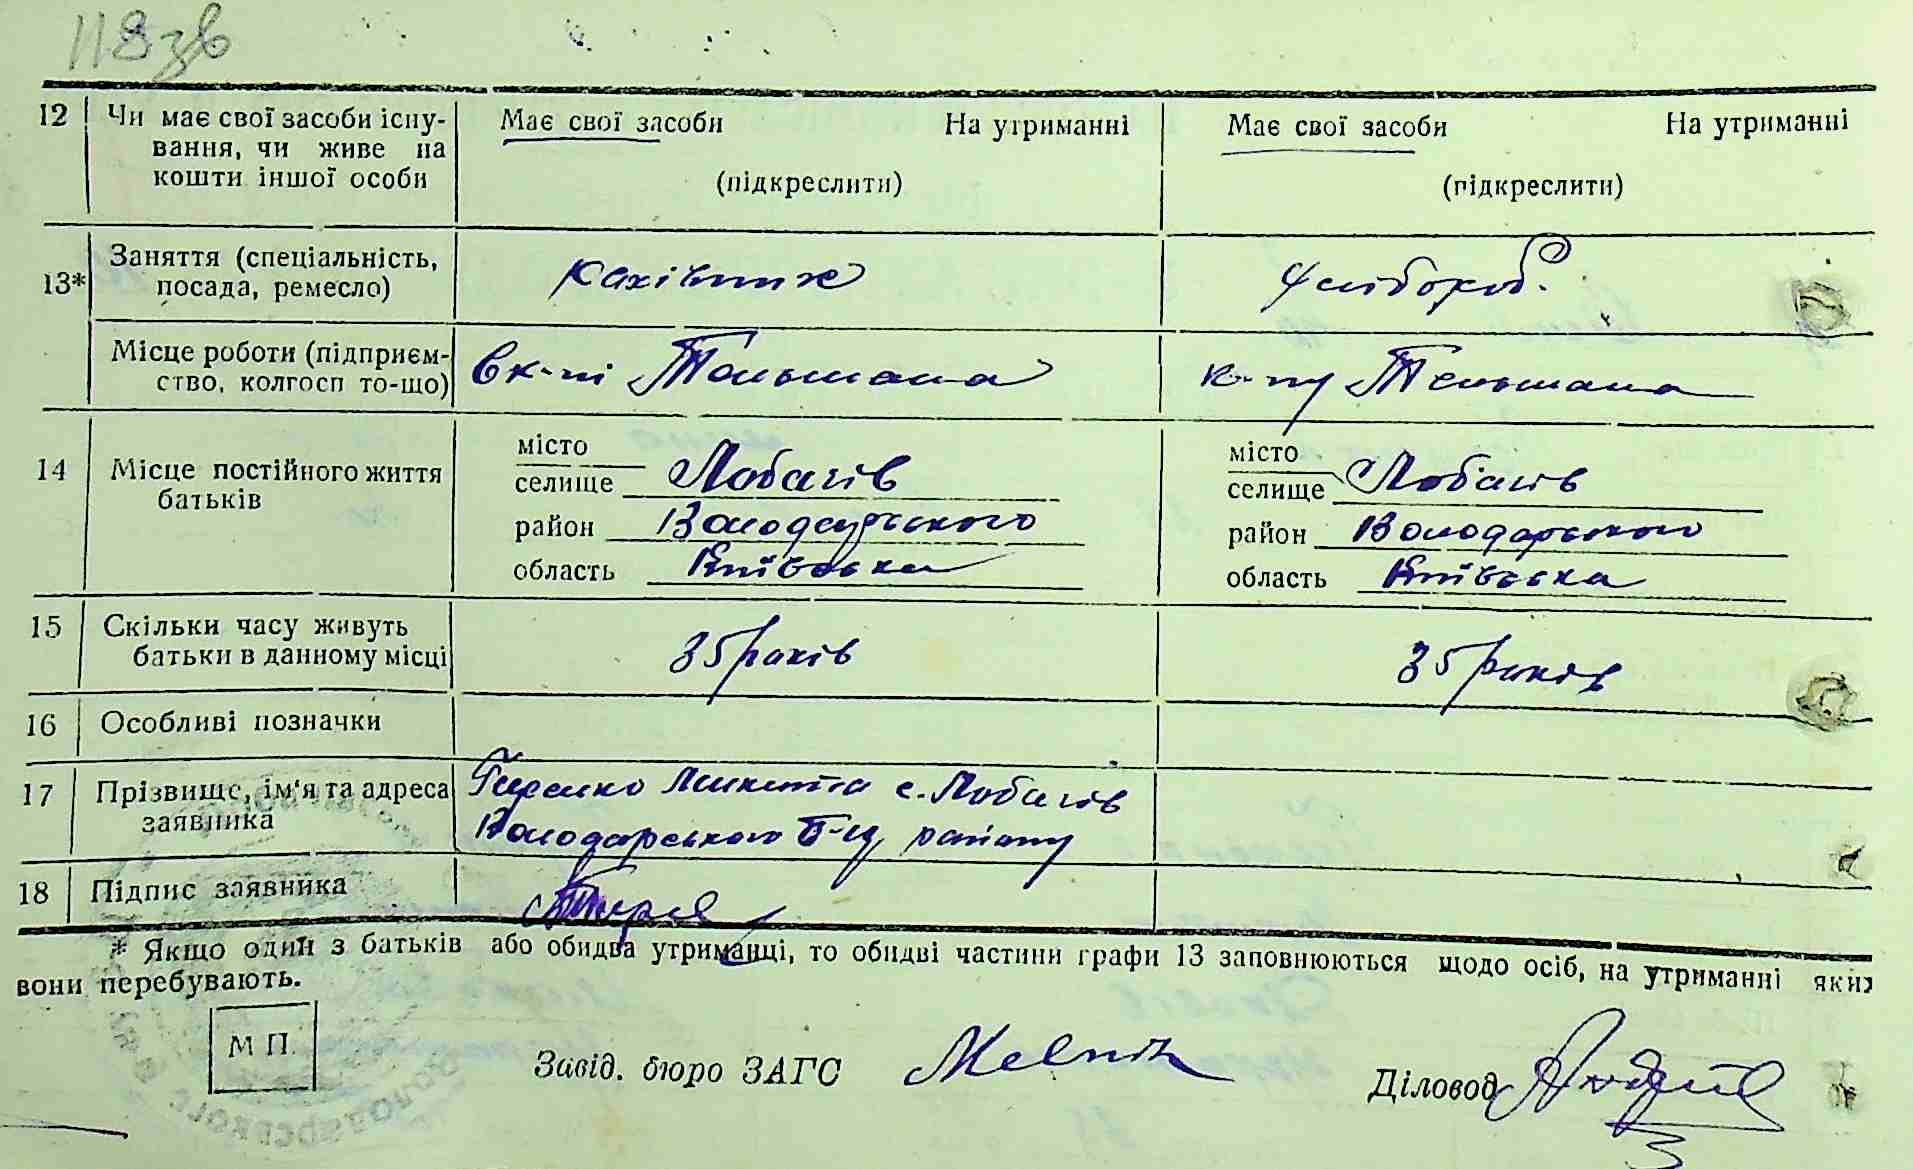 118зв
12 Чи має свої засоби існу- Має свої засоби На утриманні Має свої засоби На утриманні
вання, чи живе на
кошти іншої особи (підкреслити) (підкреслити)
13* Заняття (спеціальність,
посада, ремесло)
Місце роботи (підприєм- в к-пі Тельмана к-пу Тельмана
ство, колгосп то-що)
14 Місце постійного життя батьків
місто місто
селище Лобачів селище Лобачів
район Володарського район Володарського
область Київська область Київська
15 Скільки часу живуть 35 років 35 років
батьки в данному місці
16 Особливі позначки
17 Прізвище, ім'я та адреса Микита с. Лобачів
заявника Володарського району
18 Підпис заявника
* Якщо один з батьків або обидва утриманці, то обидві частини графи 13 заповнюються щодо осіб, на утриманні яких
вони перебувають.
М П.
Завід. бюро ЗАГС Melnik Діловод